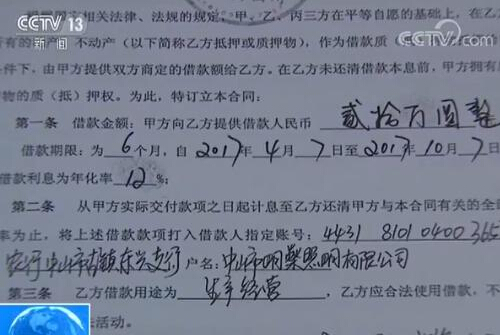 CCTV 13
新闻
CCTV.com
根据国家相关法律、法规的规定,甲、乙、丙三方在平等自愿的基础上,在乙方
所有的 产 不动产(以下简称乙方抵押或质押物),作为借款质
条件下,由甲方提供双方商定的借款额给乙方。在乙方未还清借款本息前,甲方拥有
物的质(抵)押权。为此,特订立本合同:
第一条 借款金额:甲方向乙方提供借款人民币 贰拾万圆整
借款期限:为 6 个月,自 2017 年 4 月 7 日至 2017 年 10 月 7 日
借款利息为年化率 12 %;
第二条 从甲方实际交付款项之日起计息至乙方还清甲方与本合同有关的全
率为止,将上述借款款项打入借款人指定账号:4431 8101 0400 365
农行中山市古镇东兴支行 户名:中山市明 照明有限公司
第三条 乙方借款用途为 生产经营 ,乙方应合法使用借款,不
法活动。